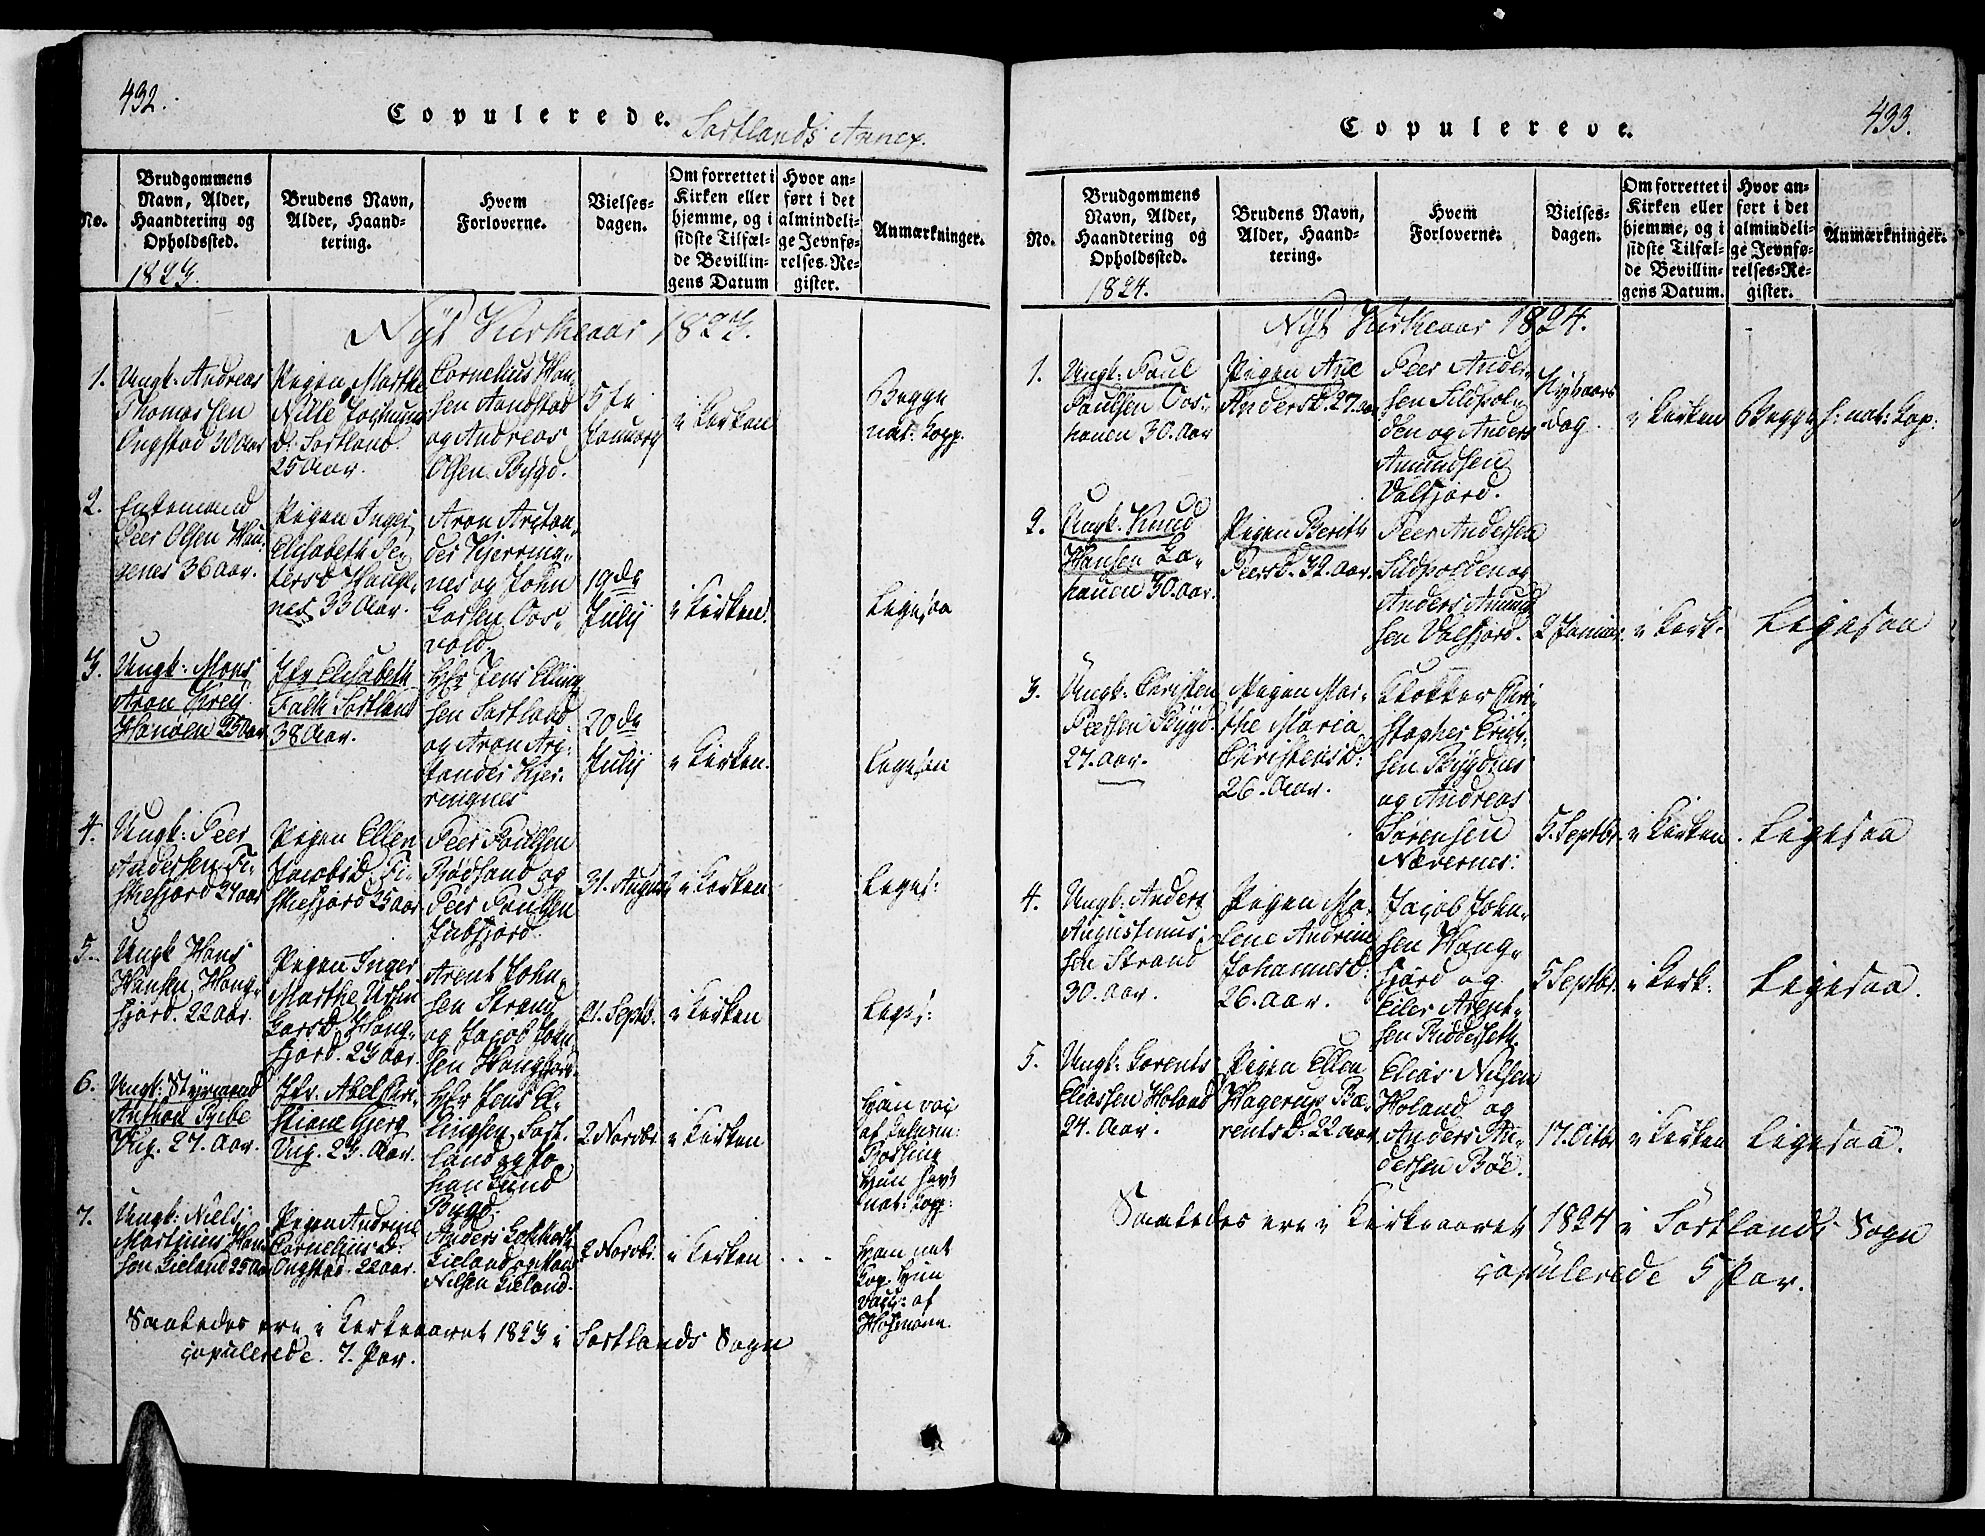 432.
Copulerede.
Sortlands Annex.
No.
Brudgommens Navn, Alder, Haandtering og Opholdssted.
1823.
Brudens Navn, Alder, Haandtering.
Hvem Forloverne.
Vielsesdagen.
Om forrettet i Kirken eller hjemme, og i sidste Tilfælde Bevillingens Datum
Hvor anført i det almindelige Jevnførelses-Register.
Anmærkninger.
Nyt Kirkeaar 1823.
1.
Ungk: Andreas
Thomassen
Ongstad 30 Aar
Pigen Marthe
Nille
d: Sortland
25 Aar.
Cornelius Han-
sen
og Andreas
Olsen Bygd.
5te
Januarij
i Kirken
Begge
nat: Kopp.
2.
Enkemand
Peer Olsen Han-
genes 36 aar.
Pigen Inger
Elisabeth Pe-
tersd
nes 33 Aar.
Aron Arctan-
der Kjerring-
nes og John
vold.
19de
Julij
i Kirken
Ligesaa
3.
Ungk: Mons
Aron Kreij
Hanøen 25 Aar
Jfr Elisabeth
Falk Sortland
38 Aar.
Hr Jens Elling-
sen Sortland
og Aron Arc-
tander Kjer-
ringnes
20de
Julij
i Kirken.
Ligesaa
4.
Ungk: Peer
Andersen Fi-
skefjord 24 aar
Pigen Ellen
Jacobsd. Fi-
skefjord 25 aar
Peer Poulsen
Rødsand og
Peer Poulsen
31. August
i Kirken
Liges:
5.
Ungk Hans
Hansen Hong-
fjord. 22 aar.
Pigen Inger
Marthe
fjord. 23 aar.
Arent John-
sen Strand
og Jacob John
sen Hongfjord.
21. Septb.
i Kirken
Liges:
6.
Ungk: Styrmand
Anthon Ribe
Vig. 27. Aar.
Jfr. Abel Chri-
stiane Gjerg
Vig. 23. Aar.
Hr Jens El-
lingsen Sort-
land og Jo-
han Lund
Bygd.
2 Novbr.
i Kirken
Han vac
af
Hun havt
nat: Kopp:
7.
Ungk: Niels
Martinus Han-
sen Lieland 25 Aar
Pigen Andrine
Corneliusd:
Ongstad 22 aar.
Anders
Lieland og Hans
Nilsen Lieland.
2 Novbr.
i Kirken
Han nat
Kop. Hun
vacc: af
Saaledes ere i Kirkeaaret 1823 i Sortlands Sogn
copulerede. 7. Par.
433.
Copulerede.
No.
Brudgommens Navn, Alder, Haandtering og Opholdssted.
1824.
Brudens Navn, Alder, Haandtering.
Hvem Forloverne.
Vielsesdagen.
Om forrettet i Kirken eller hjemme, og i sidste Tilfælde Bevillingens Datum.
Hvor anført i det almindelige Jevnførelses-Register.
Anmærkninger.
Nyt Kirkeaar 1824.
1.
Ungk: Poul
Poulsen
30. Aar
Pigen Ane
Andersd. 27. aar
Peer Ander-
sen Sildpol-
den og Anders
Amundsen
Valfjord.
Nytaars
dag.
i Kirken
Begge h: nat: Kop:
2.
Ungk. Knud
Hansen
30. aar.
Pigen Berith
Peersd. 32. Aar.
Peer Andersen
Sildpolden og
Anders Amund
sen Valfjord.
2 Januar
i Kirk:
Ligesaa
3.
Ungk: Christen
Peersen Bygd.
27. aar.
Pigen Mar-
the Maria
Christensd:
26. Aar.
Klokker Chri-
stopher Erich-
sen Bygdnes
og Andreas
Sørensen
Nævernes:
5. Septbr.
i Kirken.
Ligesaa
4.
Ungk: Anders
Augustinus-
sen Strand
30. aar.
Pigen Ma-
lene Andrine
Johannesd:
26. aar.
Jacob John-
sen Hong-
fjord og
Eiler Arent-
sen
5 Septbr.
i Kirk:
Ligesaa.
5.
Ungk: Lorents
Eliassen Holand
24. Aar.
Pigen Ellen
Hagerup Bæ-
rentsd: 22 aar
Elias Nilsen
Holand og
Anders An-
dersen Bøe.
17. Octbr
i Kirken
Ligesaa.
Saaledes ere i Kirkeaaret 1824 i Sortlands Sogn
copulerede 5 Par.